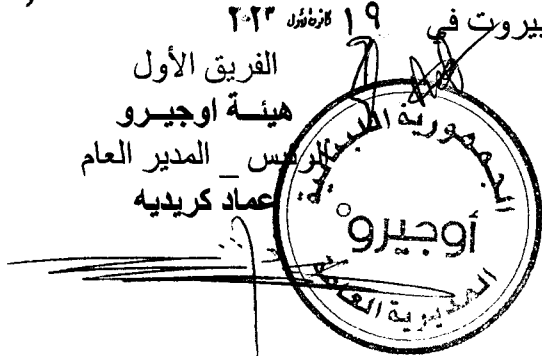 بيروت في ١٩ كانون الأول ٢٠٢٣
الفريق الأول
هيئـة اوجيـرو
الرئيس _ المدير العام
عماد كريديه
الجمهورية اللبنانية
أوجيرو
المديرية العامة